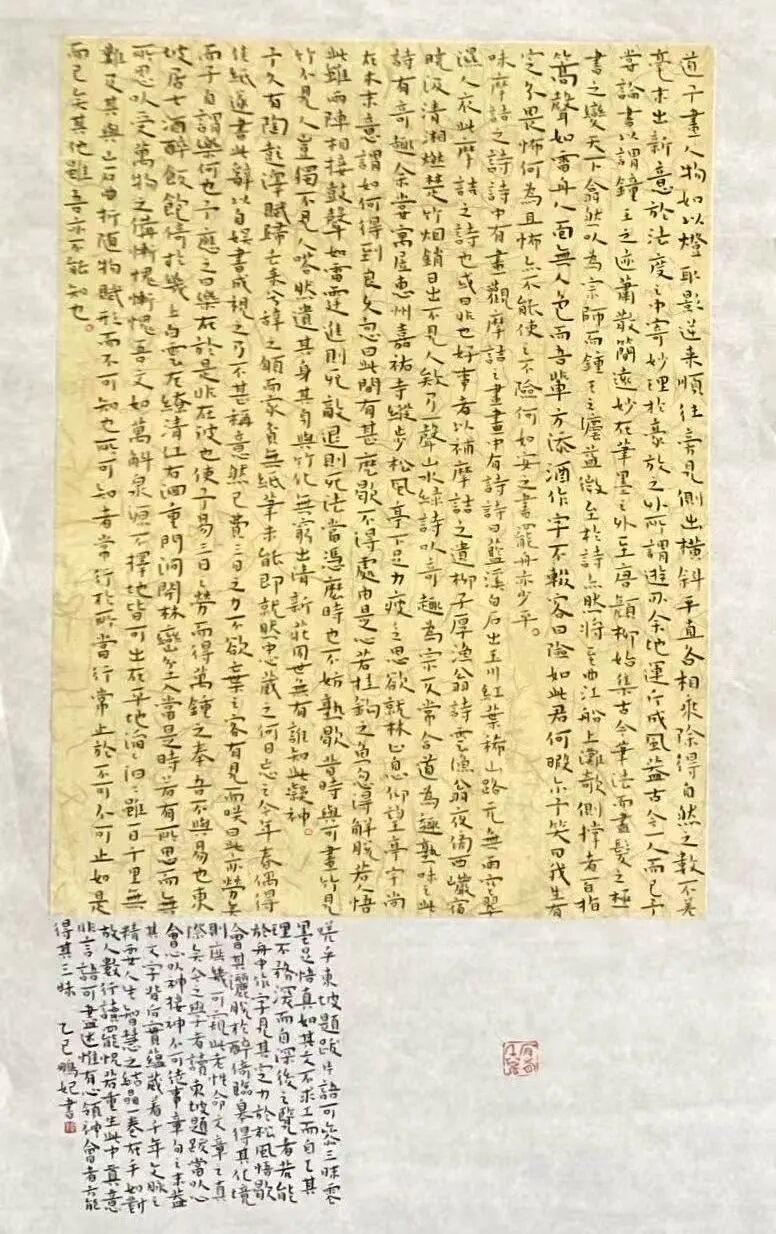 道子畫人物如以燈取影逆來順往旁見側出橫斜平直各相乘除得自然之數不差
毫末出新意於法度之中寄妙理於豪放之外所謂遊刃余地運斤成風蓋古今一人而已予
嘗論書以謂鐘王之迹蕭散簡遠妙在筆墨之外至唐顏柳始集古今筆法而盡發之極
書之變天下翕然以為宗師而鍾王之法益微至於詩亦然將至曲江船上灘欹側撐者百指
篙聲如雷舟人面無人色而吾輩方添酒作字不輟客曰險如此君何暇尔予笑曰我生有
定分畏怖何為且怖亦不能使之不險何如安之書罷舟亦少平。
味摩詰之詩詩中有畫觀摩詰之畫畫中有詩詩曰藍溪白石出玉川紅葉稀山路元無雨空翠
濕人衣此摩詩之詩也或曰非也好事者以補摩詰之遺柳子厚漁翁詩雲漁翁夜傍西巖宿
曉汲清湘燃楚竹烟銷日出不見人欸乃一聲山水綠詩以奇趣為宗反常合道為趣熟味之此
詩有奇趣余嘗寓居惠州嘉祐寺縱步松風亭下足力疲乏思欲就林止息仰望亭宇尚
在木末意謂如何得到良久忽曰此間有甚麼歇不得處由是心若挂鉤之魚忽得解脫若人悟
此雖兩陣相接鼓聲如雷霆進則死敵退則死法當恁麼時也不妨熟歇昔時與可畫竹見
竹不見人豈獨不見人嗒然遺其身其身與竹化無窮出清新莊周世無有誰知此凝神
予久有陶彭澤賦歸去來兮辭之願而家貧無紙筆未能即就然中心藏之何日忘之今年春偶得
佳紙遂書此辭以自娛書成視之乃不甚稱意然已費三日之力不欲棄之客有見而哂曰此亦勞矣
而子自謂樂何也予應之曰樂在於是非在彼也使予易三日之勞而得萬鍾之奉吾不與易也東
坡居士酒醉飯飽倚於幾上白雲左繚清江右洄重門洞開林巒坌入當是時若有所思而無
所思以受萬物之備慚愧慚愧吾文如萬斛泉源不擇地皆可出在平地滔滔汩汩雖一日千里無
難及其與山石曲折隨物賦形而不可知也所可知者常行於所當行常止於不可不可止如是
而已矣其他雖吾亦不能知也。
嗟乎東坡題跋片語可參三昧零
墨足悟真如其文不求工而自工其
理不務深而自深後之覽者若能
於舟中作字見其定力於松風悟歇
會其灑脫於醉倚臨皋得其化境
則庶幾可窺此老性命文章之真
際矣今之學者讀東坡題跋當以心
會心以神接神不可徒事章句之末蓋
其文字背后實蘊藏着千年文脉之
精要人生智慧之結晶一卷在手如對
故人數行讀罷怳若重生此中真意
非言語可盡述惟有心領神會者方能
得其三昧 乙巳鵬妃書